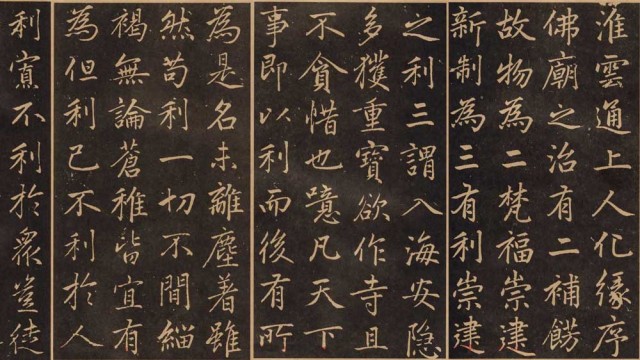 淮雲通上人化緣序
佛廟之治有二補餝
故物為二梵福崇建
新制為三有利崇建
之利三謂入海安隐
多獲重寶欲作寺且
不貪惜也噫凡天下
事即以利而後有所
為是名未離塵著雖
然苟利一切不間緇
褐無論蒼稚皆宜有
為但利己不利於人
利不利於衆豈徒